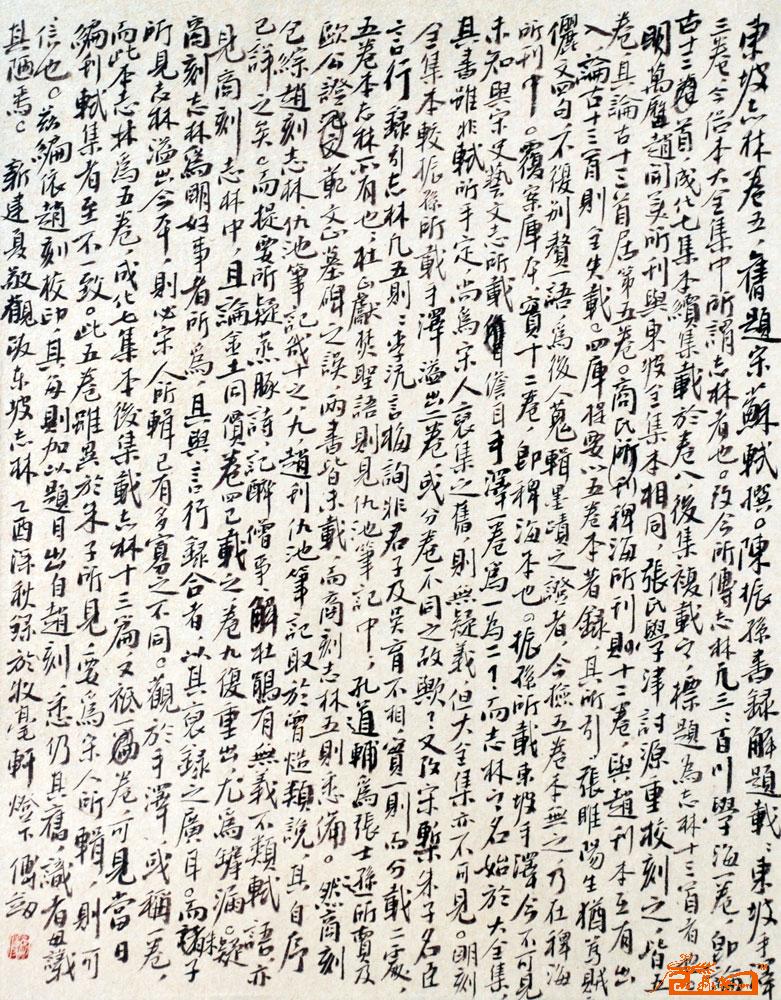 東坡志林卷五，舊題宋蘇軾撰。陳振孫書録解題載：東坡手澤
三卷今俗本大全集中所謂志林者也。攷今所傳志林凡三：百川學海一卷，即論
古十三首，成化七集本續集載於卷八後集複載之，標題為志林十三首者也。
明萬曆趙開美所刊與東坡全集本相同，張氏學津討源重校刻之，皆五
卷其論古十三首居第五卷。商氏所刊稗海所刊則十二卷，與趙刊本互有出
入，論古十三首則全失載。四庫提要以五卷本著録，其所引張睢陽生猶罵賊，
儷文四句不復別贅一語，為後人蒐輯墨蹟之證者，今撿五卷本無之，乃在稗海
所刊中。覆案庫本，實十二卷，即稗海本也。振孫所載東坡手澤今不可見
未知與宋史藝文志所載儋耳手澤一卷為一為二？而志林之名始於大全集，
其書雖非軾所手定，尚為宋人裒集之舊，則無疑義但大全集亦不可見。明刻
全集本較振孫所載手澤溢出二卷，或分卷不同之故歟？又攷宋槧朱子名臣
言行録引志林凡五則：李沆言梅詢非君子及吳育不相，實一則而分載二處，
五卷本志林所有也；杜正獻焚聖語則見仇池筆記中，孔道輔為張士孫所賣及
歐公證范文正墓碑之誤，兩書皆未載，而商刻志林五則悉備。然商刻
已綜趙刻志林仇池筆記幾十之八九，趙刊仇池筆記取於曾慥類說，其自序
已詳之矣。而提要所疑蒸豚詩記醉僧事解杜鵑有無義不類軾語，亦
見商刻志林中，且論金土同價卷四已載之卷九復重出尤為罅漏。疑
商刻志林為明好事者所為，其與言行録合者，以其裒録之廣耳。而朱子
所見志林溢出今本，則必宋人所輯已有多寡之不同。觀於手澤或稱一卷，
而此本志林為五卷，成化七集本後集載志林十三篇又祗一卷可見當日
編刊軾集者至不一致。此五卷雖異於朱子所見，要為宋人所輯，則可
信也。茲編依趙刻校印其每則加以題目出自趙刻，悉仍其舊，識者毋譏
其陋焉。新建夏敬觀跋東坡志林 乙酉深秋録於牧毫軒燈下傅